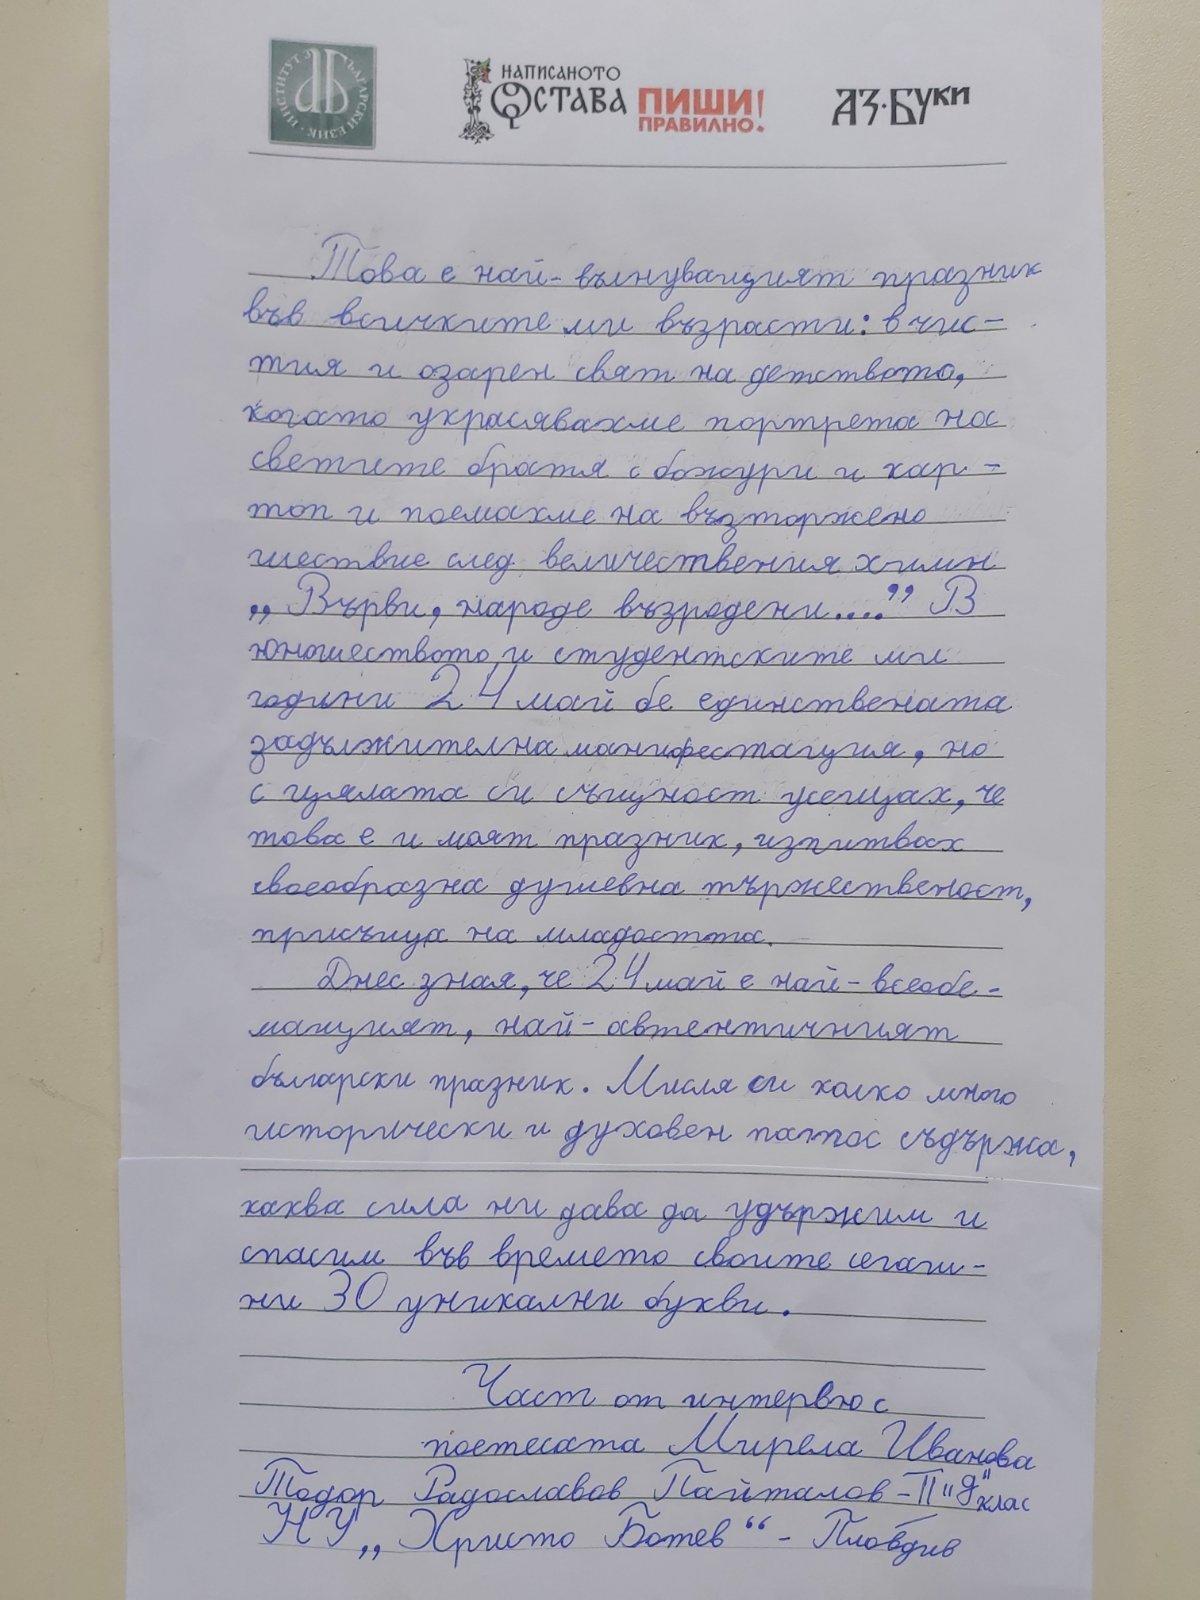 ИНСТИТУТ ЗА БЪЛГАРСКИ ЕЗИК
НАПИСАНОТО
ОСТАВА
ПИШИ!
ПРАВИЛНО!
АЗ·БУКИ
Това е най-вълнуващият празник
във всичките ми възрасти: в чис-
тия и озарен свят на детството,
когато украсявахме портрета на
светите братя с божури и кар-
топ и поемахме на възторжено
шествие след величествения химн
„Върви, народе възродени....” В
юношеството и студентските ми
години 24 май бе единствената
задължителна манифестация, но
с цялата си същност усещах, че
това е и моят празник, изпитвах
своеобразна душевна тържественост,
присъща на младостта.
Днес зная, че 24 май е най-всеобе-
мащият, най-автентичният
български празник. Мисля си колко много
исторически и духовен патос съдържа,
каква сила ни дава да удържим и
спасим във времето своите сегаш-
ни 30 уникални букви.
Част от интервю с
поетесата Мирела Иванова
Тодор Радославов Пайталов - II "д" клас
НУ „Христо Ботев“ - Пловдив